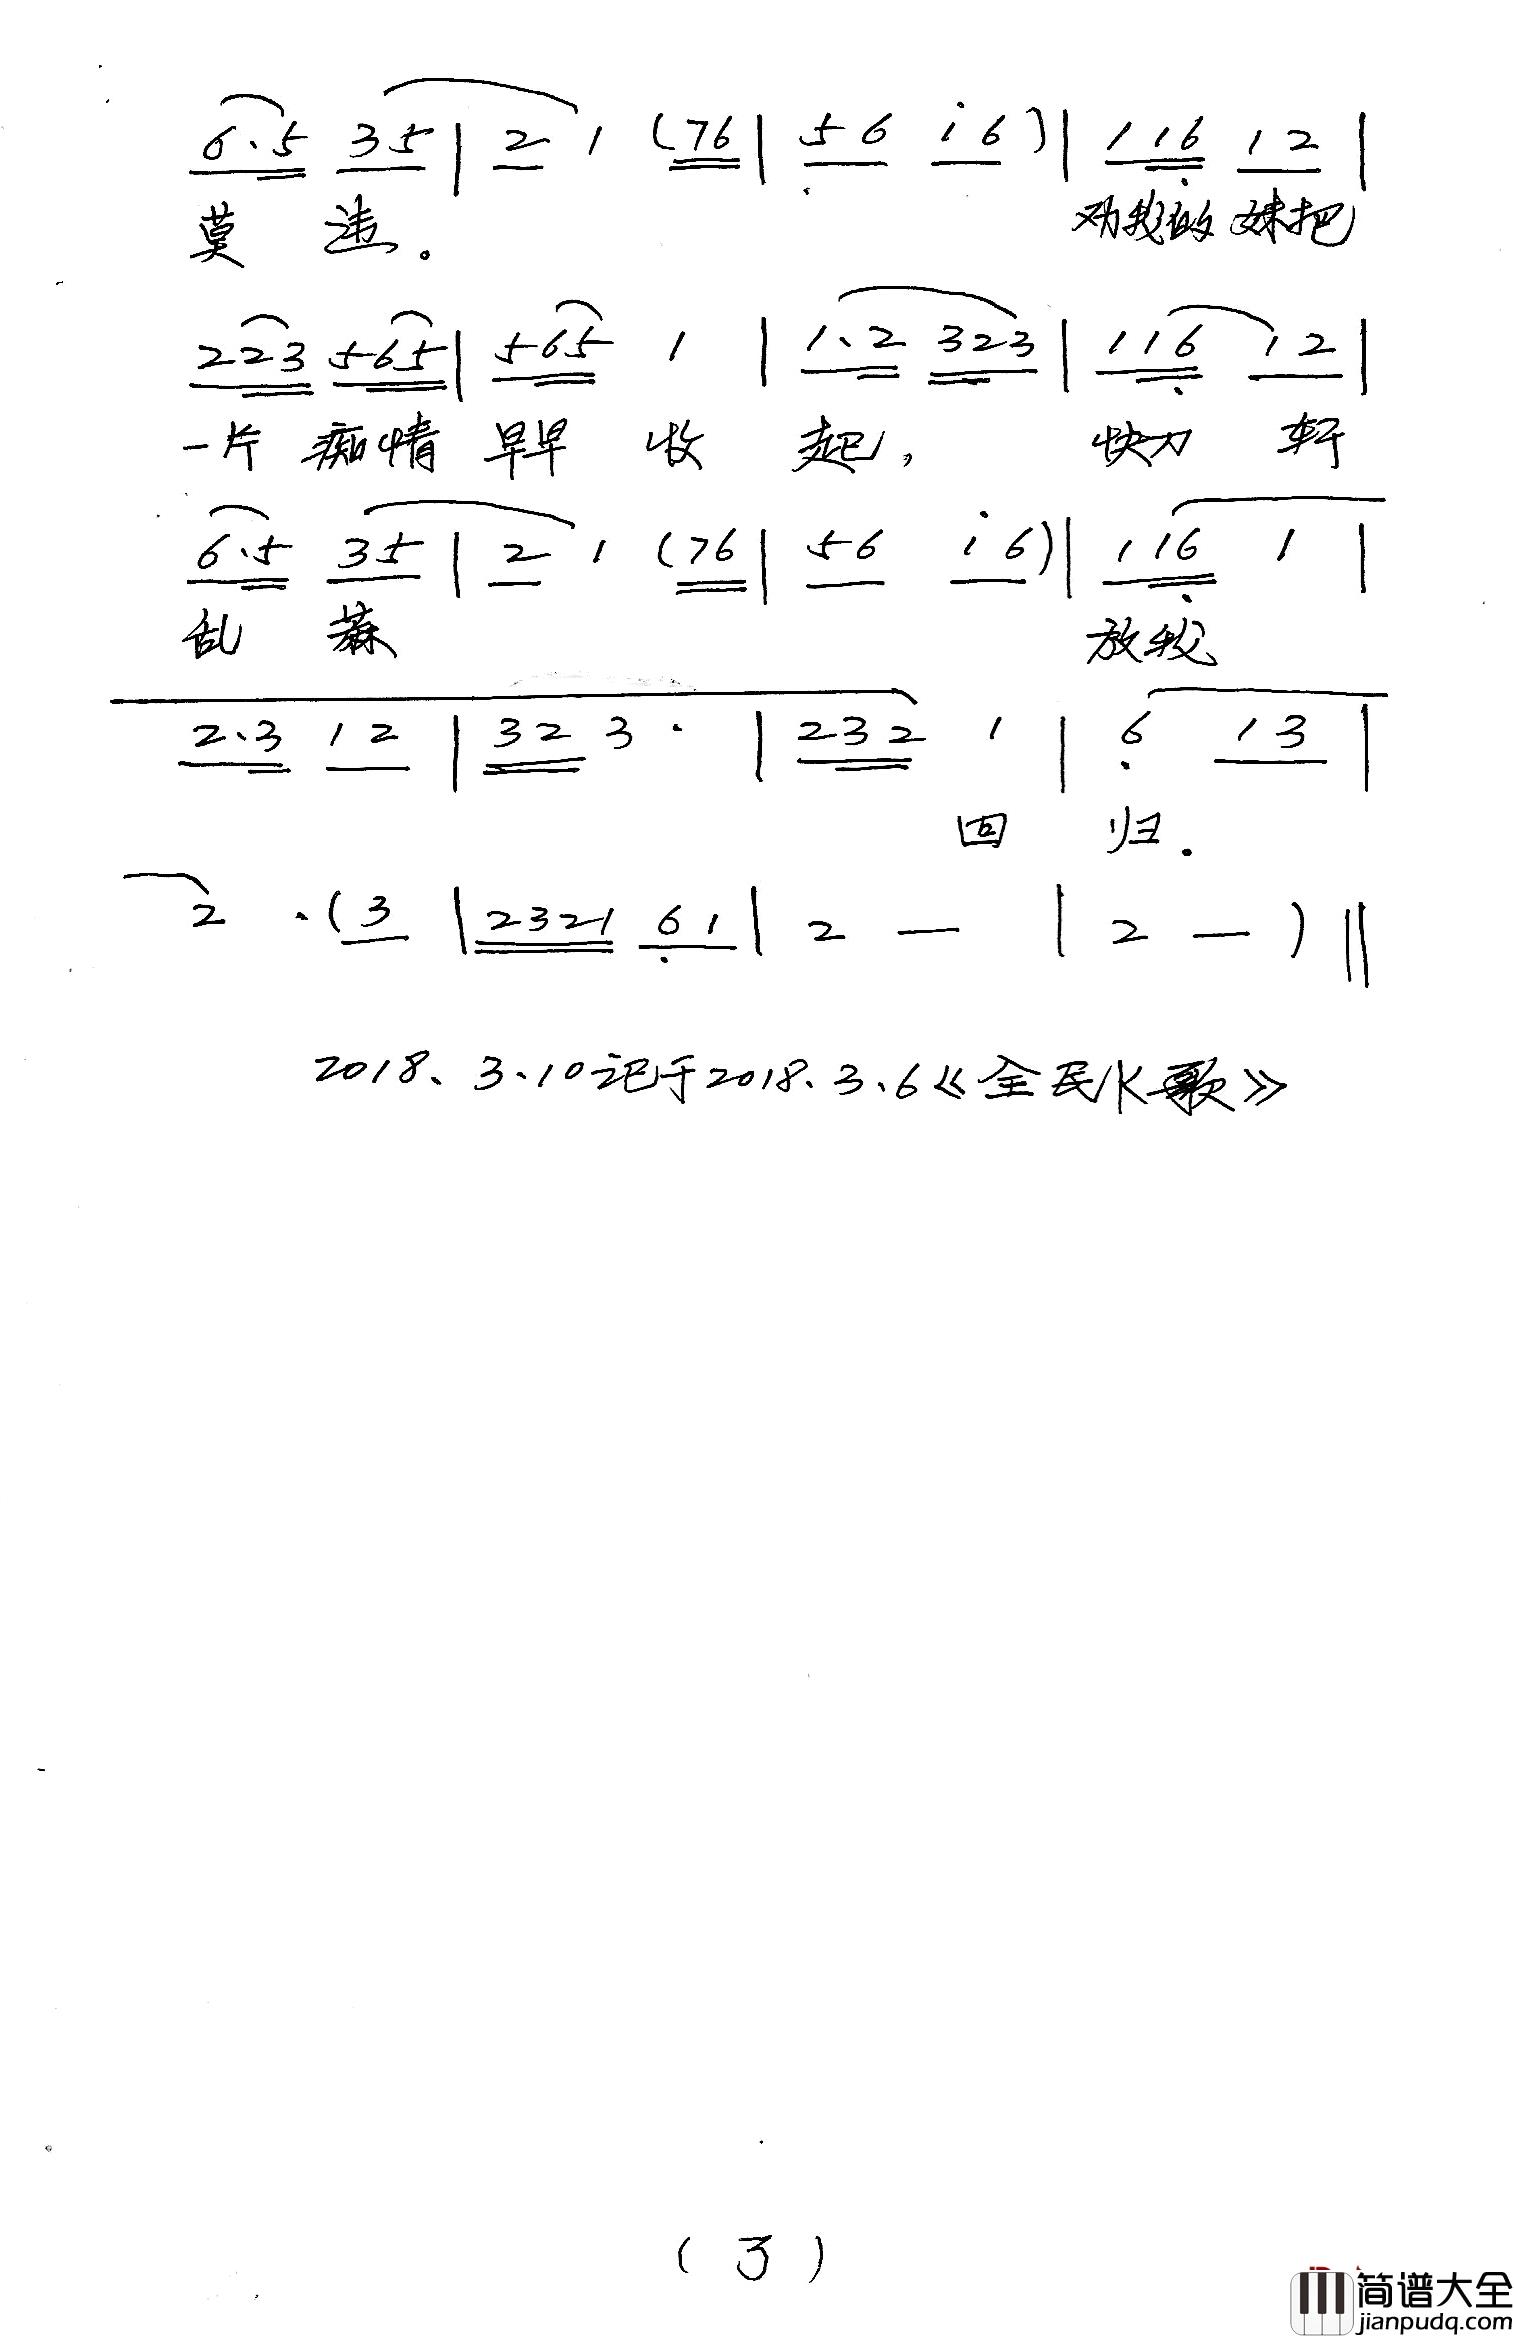 6.5 35 | 2 1 (76 | 56 i6) | 116 12 |
莫 违。 劝我的 妹把
223 565 | 565 1 | 1.2 323 | 116 12 |
一片 痴情 早早 收 起, 快刀 斩
6.5 35 | 2 1 (76 | 56 i6) | 116 1 |
乱 麻 放我
2.3 12 | 32 3 · | 232 1 | 6 13 |
回 归.
2 ·(3 | 2321 61 | 2 — | 2 — ) ‖
2018.3.10记于2018.3.6《全民K歌》
(3)
简谱大全
jianpudq.com